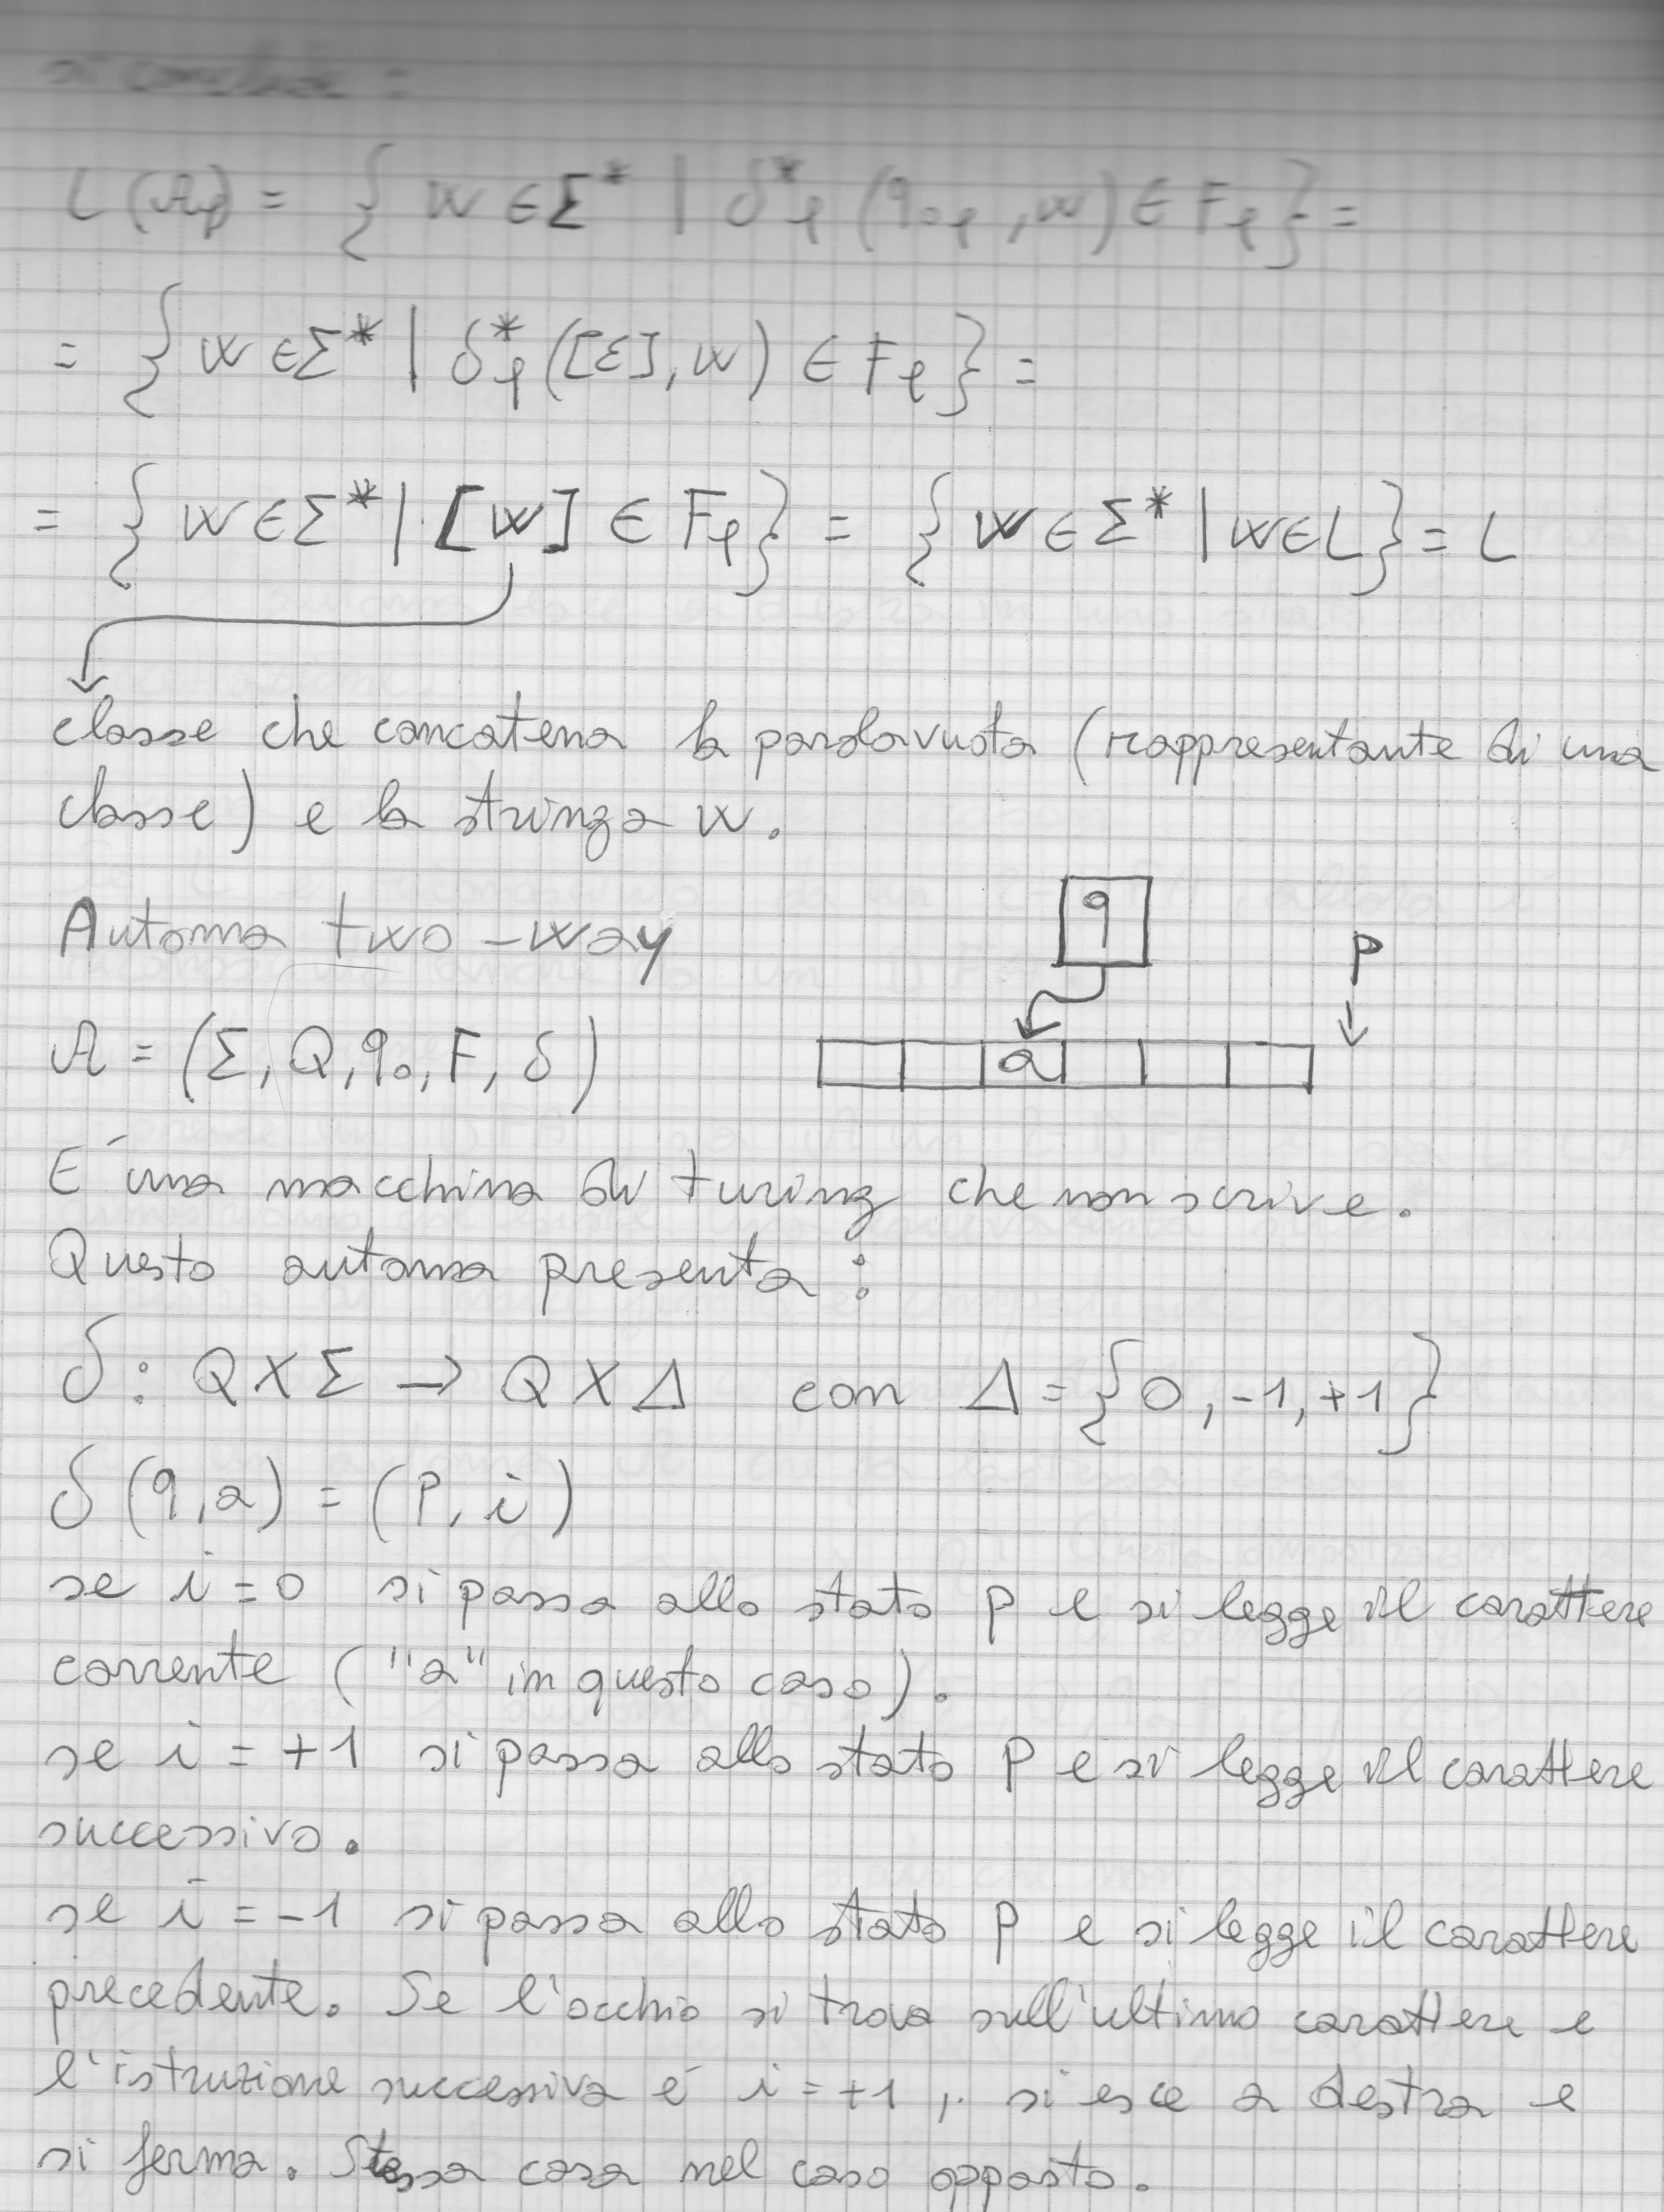 si conclude :
L(𝒜ℓ) = { w ∈ Σ* | δ*ℓ (q₀ℓ, w) ∈ Fℓ } =
= { w ∈ Σ* | δ*ℓ ([ε], w) ∈ Fℓ } =
= { w ∈ Σ* | [w] ∈ Fℓ } = { w ∈ Σ* | w ∈ L } = L
classe che concatena la parola vuota (rappresentante di una
classe) e la stringa w.
Automa two-way
q
P
𝒜 = (Σ, Q, q₀, F, δ)
a
E´ una macchina di turing che non scrive.
Questo automa presenta :
δ : Q X Σ → Q X Δ con Δ = { 0, -1, +1 }
δ (q, a) = (P, i)
se i = 0 si passa allo stato P e si legge il carattere
corrente ("a" in questo caso).
se i = +1 si passa allo stato P e si legge il carattere
successivo.
se i = -1 si passa allo stato P e si legge il carattere
precedente. Se l'occhio si trova sull'ultimo carattere e
l'istruzione successiva é i = +1, si esce a destra e
si ferma. Stessa cosa nel caso opposto.